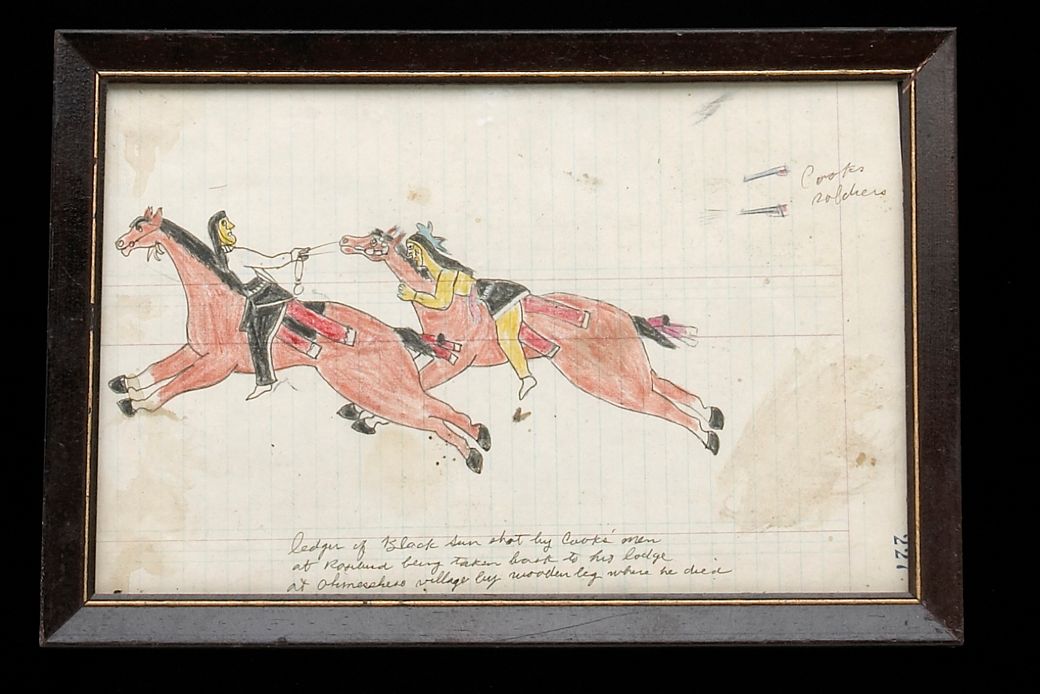 Cooks
soldiers
ledger of Black Sun shot by Cooks' men
at Rosebud being taken back to his lodge
at Ohmeseheso village by wooden leg where he died
221